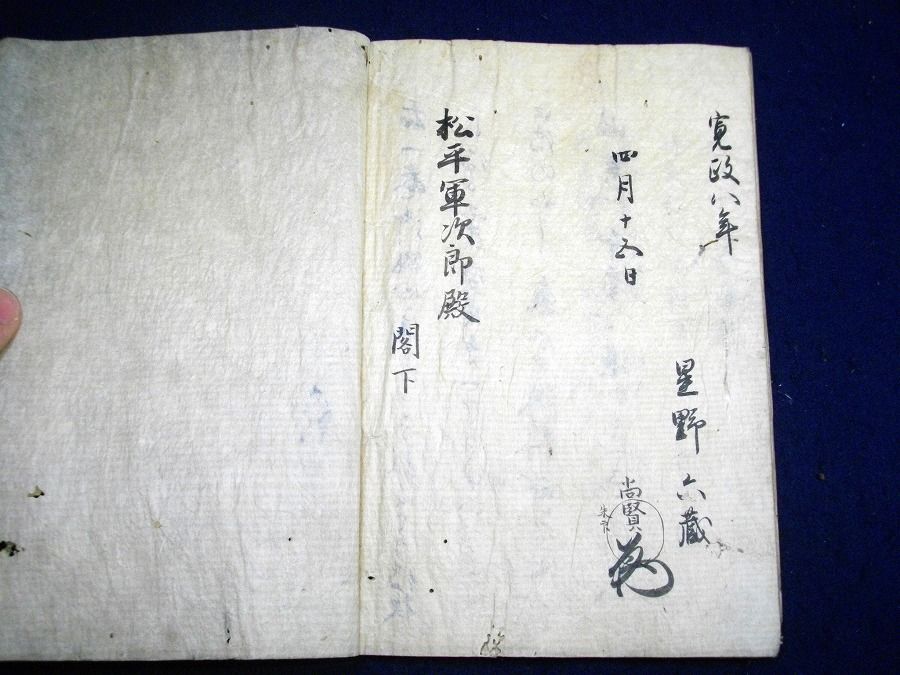 寛政八年
星野六蔵
四月十五日
尚賢
朱印
松平軍次郎殿
閣下